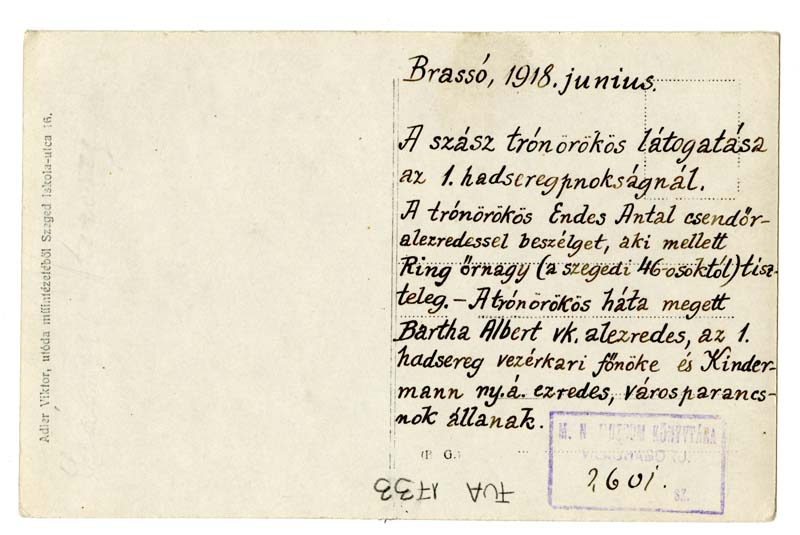 Brassó, 1918. junius.
A szász trónörökös látogatása
az 1. hadseregpnokságnál.
A trónörökös Endes Antal csendőr-
alezredessel beszélget, aki mellett
Ring őrnagy (a szegedi 46-osoktól) tisz-
teleg. - A trónörökös háta megett
Bartha Albert vk. alezredes, az 1.
hadsereg vezérkari főnöke és Kinder-
mann ny.á. ezredes, városparancs-
nok állanak.
(P. G.)
M. N. MUZEUM KÖNYVTÁRA
2601.
SZ.
FVA 1733
Adler Viktor, utóda műintézetéből Szeged Iskola-utca 16.